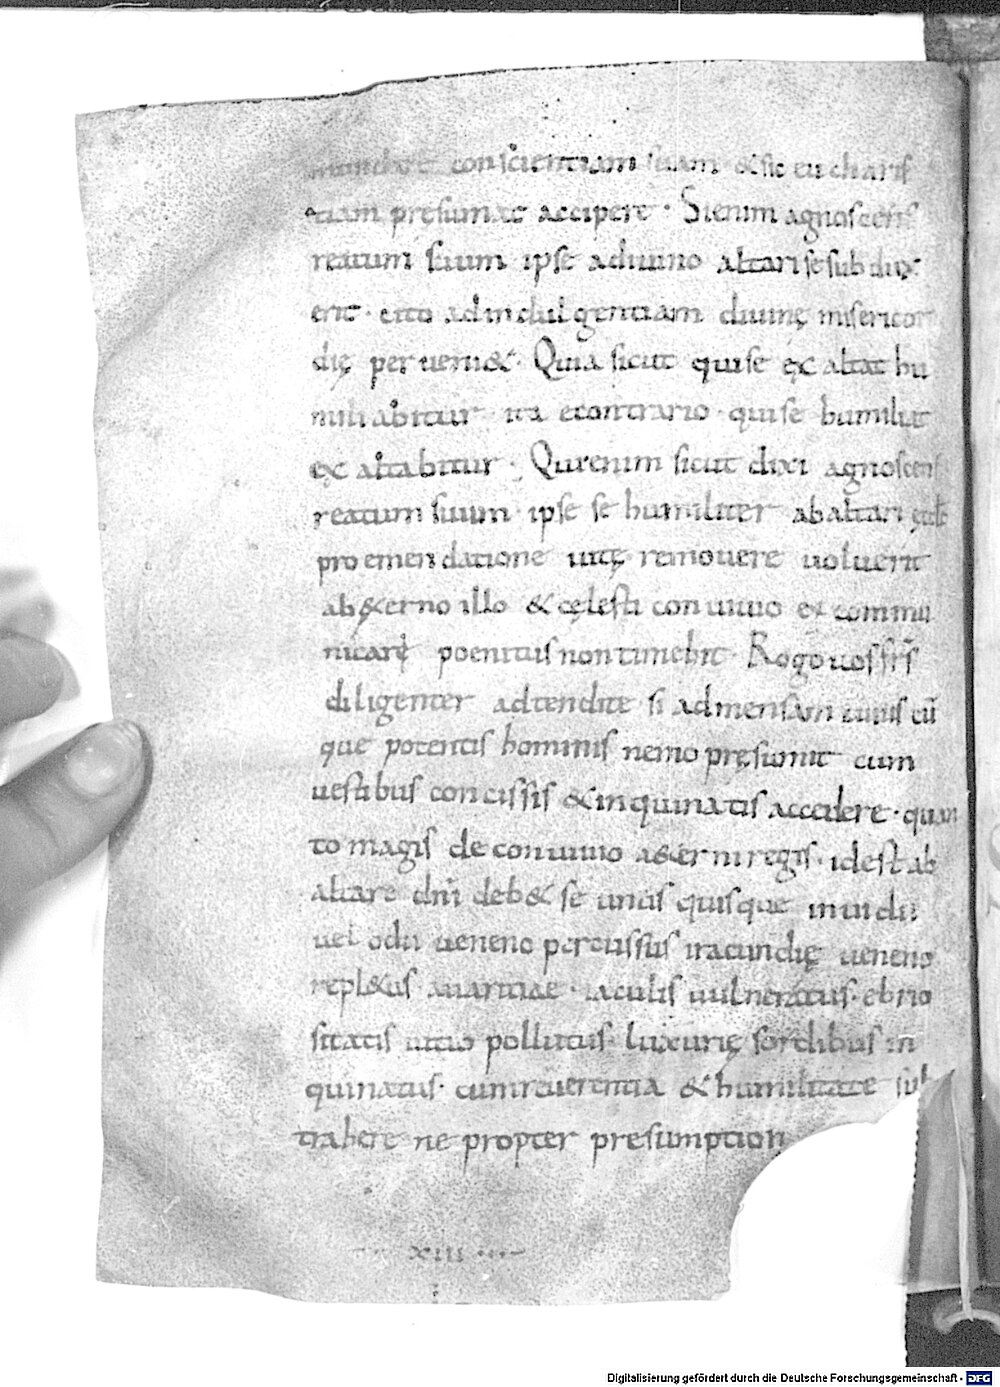 mundare conscientiam suam & sic eucharis
tiam presumat accipere · Si enim agnoscens
reatum suum ipse a diuino altari se subdux
erit · cito ad indulgentiam diuinę misericor
dię perueni& · Quia sicut qui se exaltat hu
miliabitur ita econtrario qui se humiliat
exaltabitur · Qui enim sicut dixi agnoscens
reatum suum ipse se humiliter ab altari
pro emendatione uitę remouere uoluerit
ab &erno illo & cęlesti conuiuio excommu
nicari poenitus non timebit · Rogo uos frs
diligenter adtendite si ad mensam cuius cū
que potentis hominis nemo pręsumit cum
uestibus concissis & inquinatis accedere · quan
to magis de conuiuio a&erni regis · id est ab
altare dnī deb& se unus quisque inuidii
uel odii ueneno percussus iracundię ueneno
repl&us auaritiae · iaculis uulneratus · ebrio
sitatis uitio pollutus · luxurię sordibus in
quinatus · cum reuerentia & humilitate sub
trahere ne propter presumption
XIII
Digitalisierung gefördert durch die Deutsche Forschungsgemeinschaft - DFG